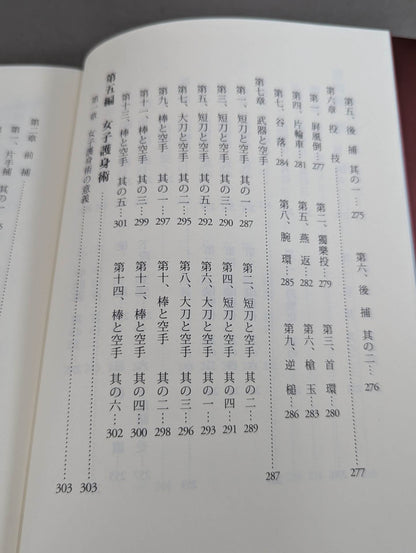 第五、後捕 其の一…275
第六、後捕 其の二…276
第六章 投技…277
第一、屏風倒…277
第二、獨樂投…279
第三、首環…280
第四、片輪車…281
第五、燕返…282
第六、槍玉…283
第七、谷落…284
第八、腕環…285
第九、逆槌…286
第七章 武器と空手…287
第一、短刀と空手 其の一…287
第二、短刀と空手 其の二…289
第三、短刀と空手 其の三…290
第四、短刀と空手 其の四…291
第五、大刀と空手 其の一…292
第六、大刀と空手 其の一…293
第七、大刀と空手 其の二…295
第八、大刀と空手 其の三…296
第九、棒と空手 其の一…297
第十、棒と空手 其の二…298
第十一、棒と空手 其の三…299
第十二、棒と空手 其の四…300
第十三、棒と空手 其の五…301
第十四、棒と空手 其の六…302
第五編 女子護身術…303
第一章 女子護身術の意義…303
第二章 前捕
第一、片手捕